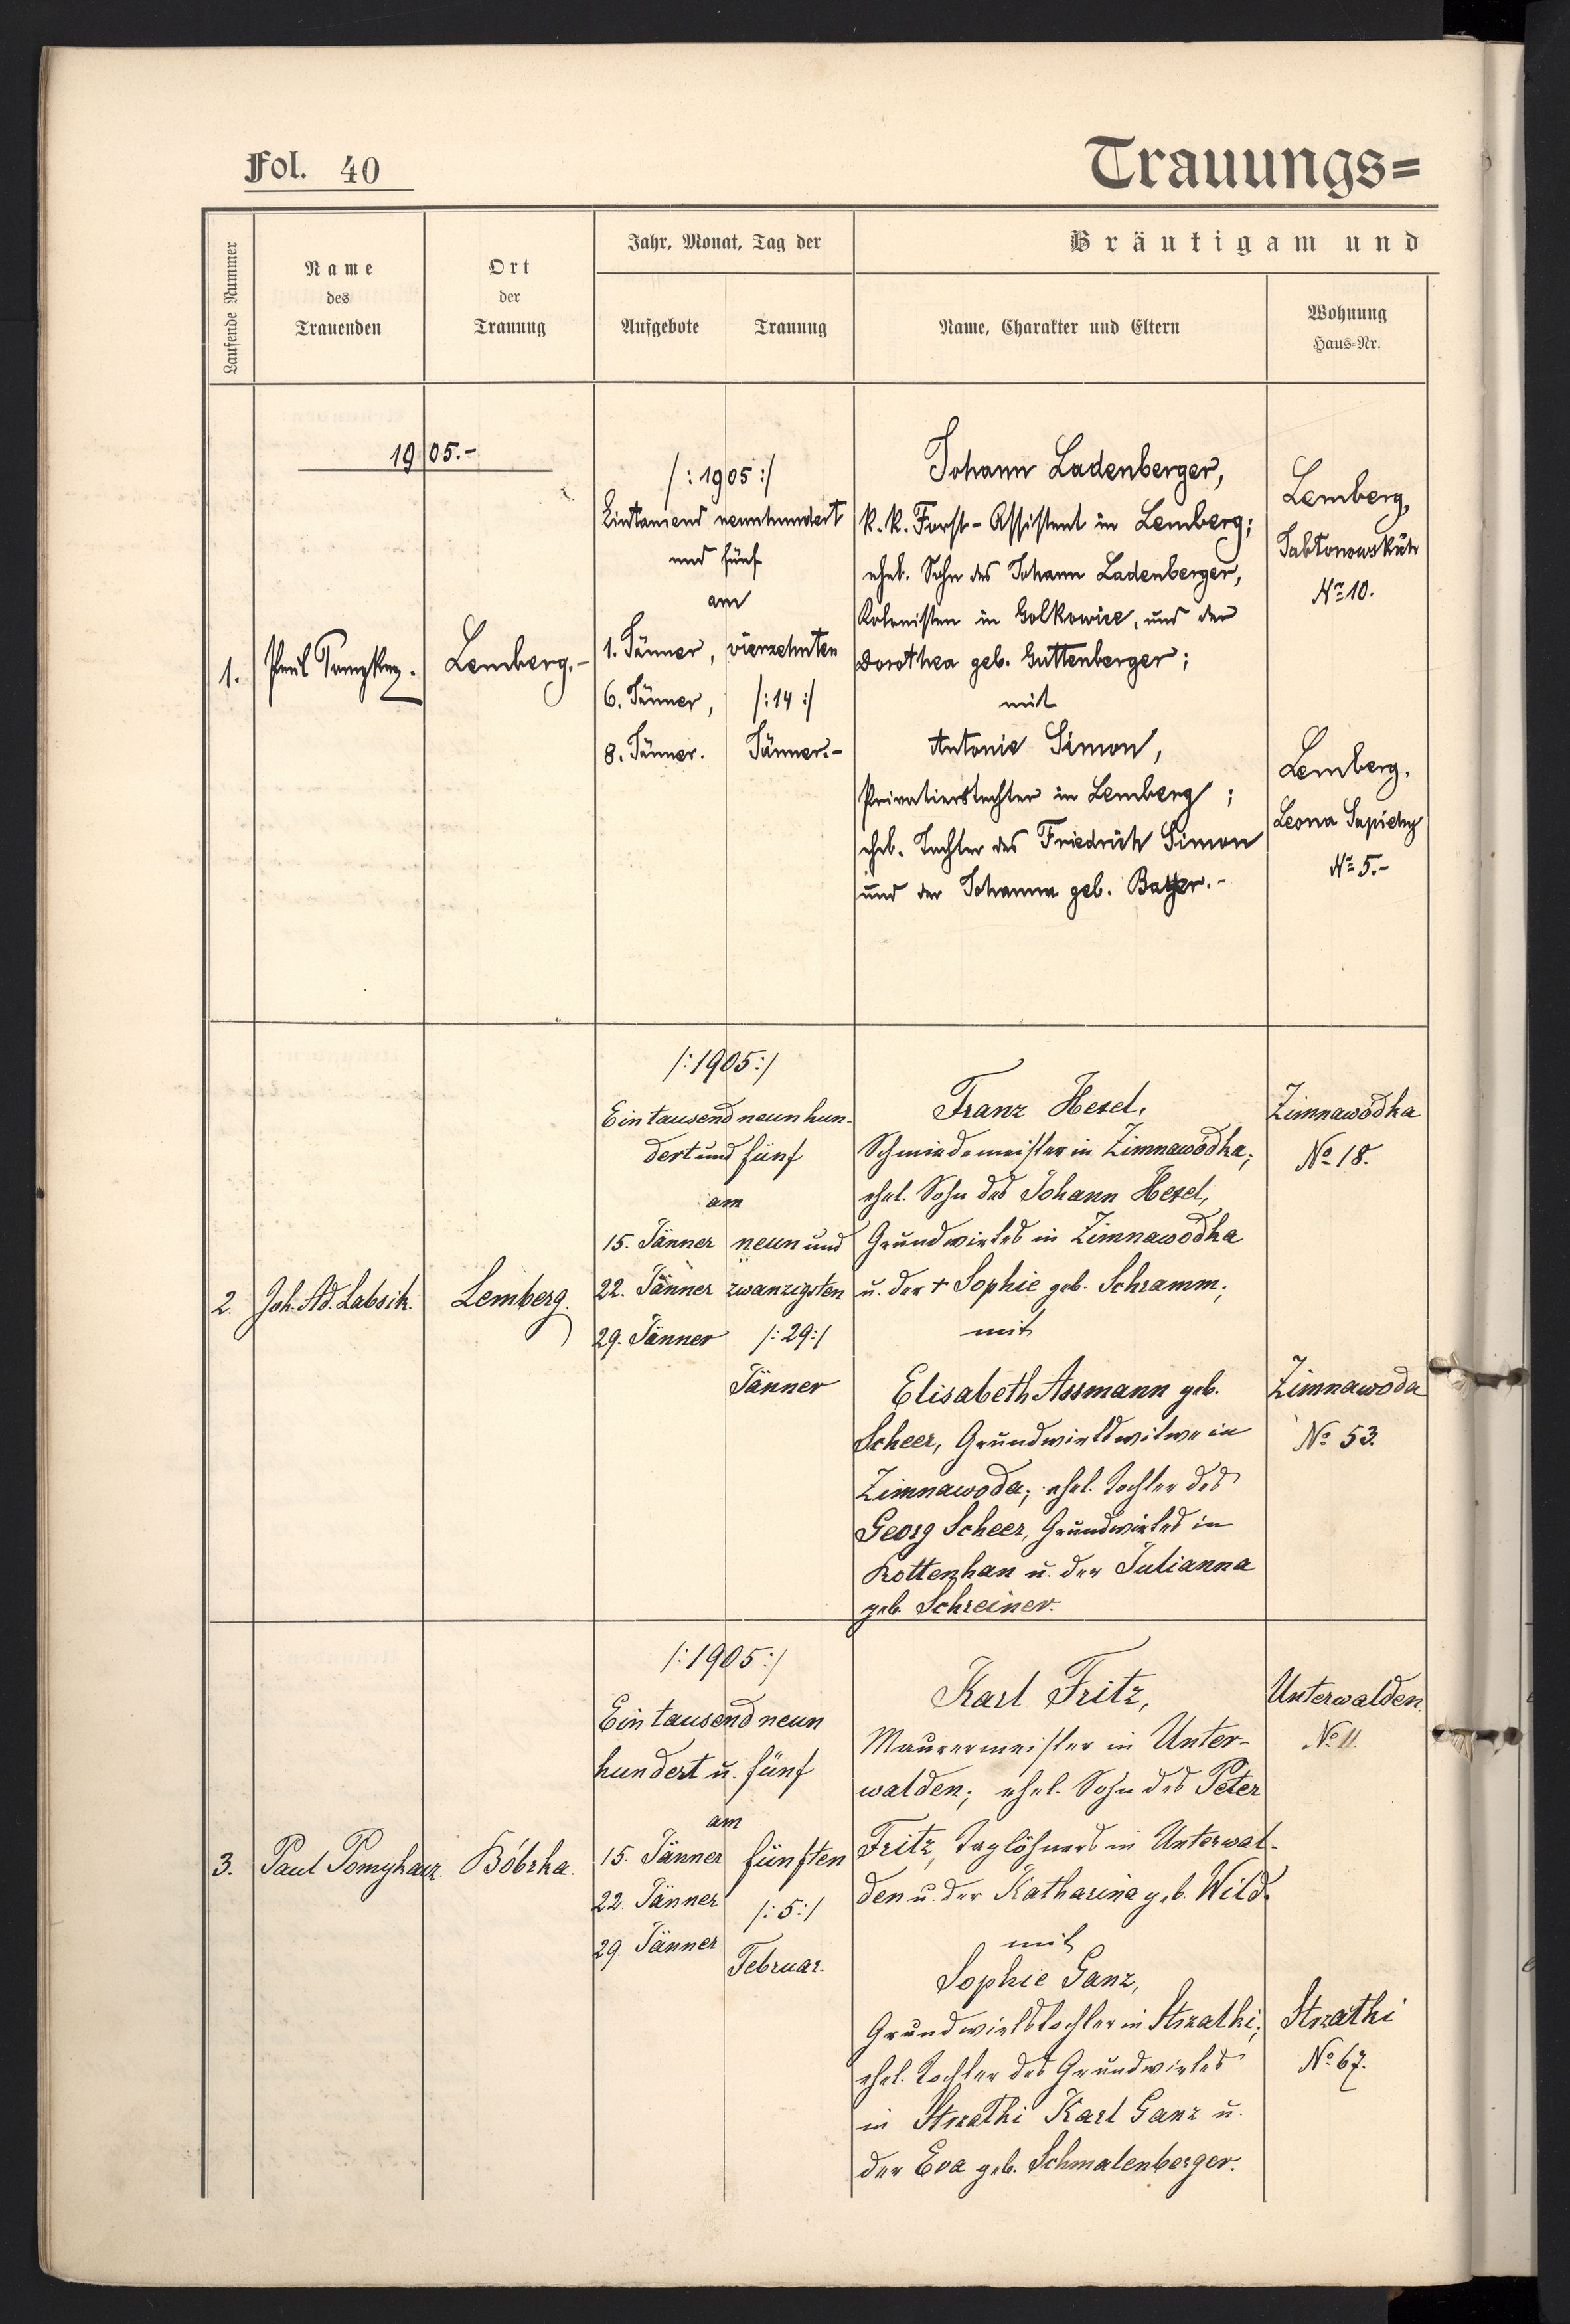 Fol. 40
Trauungs=
Laufende Nummer
Name
des
Trauenden
Ort
der
Trauung
Jahr, Monat, Tag der
Aufgebote
Trauung
Bräutigam und
Name, Charakter und Eltern
Wohnung
Haus=Nr.
1905.-
1.
Paul
Lemberg.-
/: 1905 :/
Eintausend neunhundert
und fünf
am
1. Jänner, vierzehnten
6. Jänner, /: 14 :/
8. Jänner. Jänner.-
Johann Ladenberger,
k. k. Forst-Assistent in Lemberg;
ehel. Sohn des Johann Ladenberger,
Kolonisten in Golkowice, und der
Dorothea geb. Guttenberger;
mit
Antonie Simon,
Privatierstochter in Lemberg;
ehel. Tochter des Friedrich Simon
und der Johanna geb. Bayer.-
Lemberg,
№ 10.
Lemberg,
Leona Sapiehy
№ 5.-
2.
Joh. Ad. Labsik.
Lemberg.
/: 1905 :/
Eintausend neunhun-
dert und fünf
am
15. Jänner neun und
22. Jänner zwanzigsten
29. Jänner /: 29 :/
Jänner
Franz Hesel,
Schmiedemeister in Zimnawódka;
ehel. Sohn des Johann Hesel,
Grundwirtes in Zimnawodka
u. der + Sophie geb. Schramm;
mit
Elisabeth Assmann geb.
Scheer, Grundwirtswitwe in
Zimnawoda; ehel. Tochter des
Georg Scheer, Grundwirtes in
Rottenhan u. der Julianna
geb. Schreiner.
Zimnawódka
№ 18.
Zimnawoda
№ 53.
3.
Paul Pomykacz.
Bóbrka.
/: 1905 :/
Eintausend neun
hundert u. fünf
am
15. Jänner fünften
22. Jänner /: 5 :/
29. Jänner Februar.
Karl Fritz,
Maurermeister in Unter-
walden; ehel. Sohn des Peter
Fritz, Taglöhners in Unterwal-
den u. der Katharina geb. Wild.
mit
Sophie Ganz,
Grundwirtstochter in Strzałki;
ehel. Tochter des Grundwirtes
in Strzałki Karl Ganz u.
der Eva geb. Schmalenberger.
Unterwalden
№ 11.
Strzałki
№ 67.